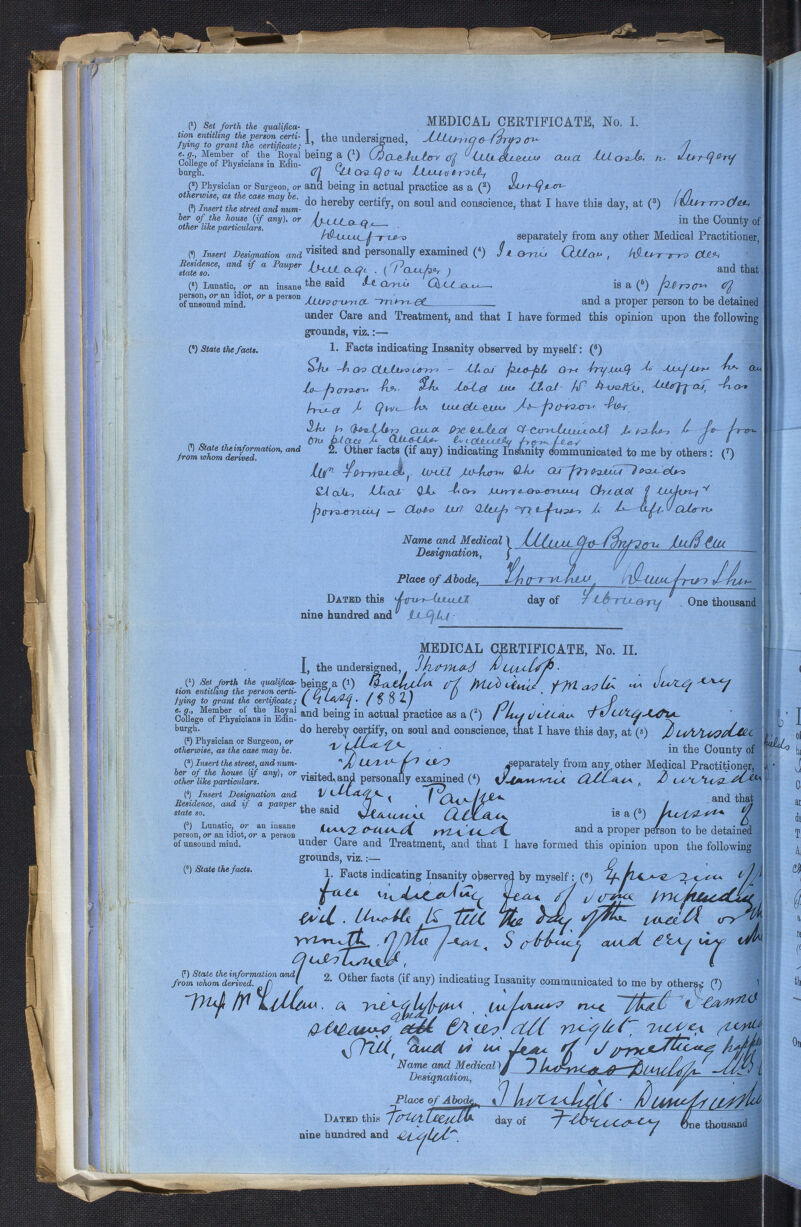 MEDICAL CERTIFICATE, No. I.
(¹) Set forth the qualifica-
tion entitling the person certi-
fying to grant the certificate;
e. g., Member of the Royal
College of Physicians in Edin-
burgh.
(²) Physician or Surgeon, or
otherwise, as the case may be.
(³) Insert the street and num-
ber of the house (if any), or
other like particulars.
(⁴) Insert Designation and
Residence, and if a Pauper
state so.
(⁵) Lunatic, or an insane
person, or an idiot, or a person
of unsound mind.
(⁶) State the facts.
(⁷) State the information, and
from whom derived.
I, the undersigned, Mungo Bryson
being a (¹) Bachelor of Medicine and Master in Surgery
of Glasgow University
and being in actual practice as a (²) Surgeon
do hereby certify, on soul and conscience, that I have this day, at (³) Durrisdeer
village in the County of
Dumfries separately from any other Medical Practitioner,
visited and personally examined (⁴) Jeanie Allan, Durrisdeer
village. (Pauper) and that
the said Jeanie Allan is a (⁵) person of
unsound mind and a proper person to be detained
under Care and Treatment, and that I have formed this opinion upon the following
grounds, viz.:—
1. Facts indicating Insanity observed by myself: (⁶)
She has delusions – that people are trying to injure her
to poison her. She told me that Dr Huskie, Moffat, has
tried to give her medicine to poison her.
She is restless and excited & continually wishes to go from
one place to another evidently from fear
2. Other facts (if any) indicating Insanity communicated to me by others: (⁷)
with whom she at present resides
states that she has unreasoning dread of injury &
poisoning – does not sleep & refuses to be left alone
Name and Medical
Designation, } Mungo Bryson MB CM
Place of Abode, Thornhill, Dumfriesshire
DATED this fourteenth day of February One thousand
nine hundred and eight.
MEDICAL CERTIFICATE, No. II.
(¹) Set forth the qualifica-
tion entitling the person certi-
fying to grant the certificate;
e. g., Member of the Royal
College of Physicians in Edin-
burgh.
(²) Physician or Surgeon, or
otherwise, as the case may be.
(³) Insert the street, and num-
ber of the house (if any), or
other like particulars.
(⁴) Insert Designation and
Residence, and if a pauper
state so.
(⁵) Lunatic, or an insane
person, or an idiot, or a person
of unsound mind.
(⁶) State the facts.
(⁷) State the information and
from whom derived.
I, the undersigned, Thomas Dunlop.
being a (¹) Bachelor of Medicine & Master in Surgery
(Glasg. 1882)
and being in actual practice as a (²) Physician & Surgeon
do hereby certify, on soul and conscience, that I have this day, at (³) Durrisdeer
village in the County of
Dumfries separately from any other Medical Practitioner,
visited and personally examined (⁴) Jeannie Allan, Durrisdeer
village, Pauper and that
the said Jeannie Allan is a (⁵) person of
unsound mind and a proper person to be detained
under Care and Treatment, and that I have formed this opinion upon the following
grounds, viz.:—
1. Facts indicating Insanity observed by myself: (⁶) Expression of
face indicating fear of some impending
evil. Unable to tell the day of the week or
month of the year. Sobbing and crying
questioned.
2. Other facts (if any) indicating Insanity communicated to me by others: (⁷)
McLellan. a neighbour informs me that Jeannie
screams and cries all night never
still, and is in fear of something
Name and Medical
Designation, } Thomas Dunlop
Place of Abode, Thornhill. Dumfriesshire
DATED this Fourteenth day of February One thousand
nine hundred and eight.